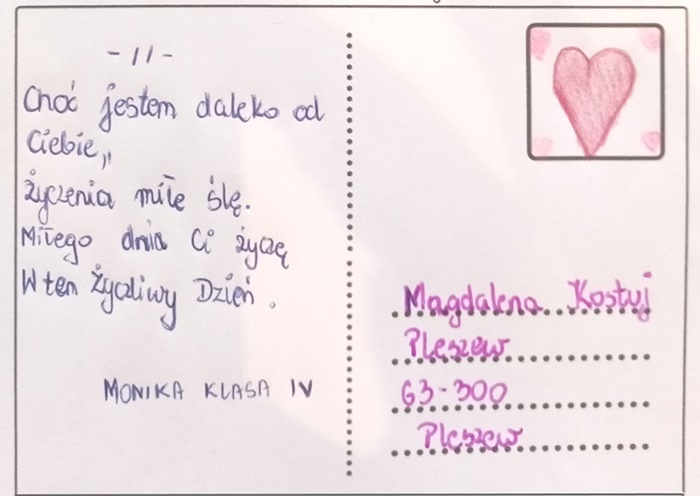 - 11 -
Choć jestem daleko od
Ciebie,,
życzenia miłe ślę.
Miłego dnia Ci życzę
W ten Życzliwy Dzień.
MONIKA KLASA IV
Magdalena Kostuj
Pleszew
63-300
Pleszew